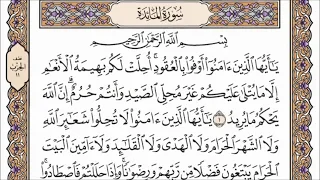 سُورَةُ المَائِدَةِ
بِسْمِ اللَّهِ الرَّحْمَٰنِ الرَّحِيمِ
يَٰٓأَيُّهَا الَّذِينَ ءَامَنُوٓا۟ أَوْفُوا۟ بِالْعُقُودِ ۚ أُحِلَّتْ لَكُم بَهِيمَةُ الْأَنْعَٰمِ
إِلَّا مَا يُتْلَىٰ عَلَيْكُمْ غَيْرَ مُحِلِّى الصَّيْدِ وَأَنتُمْ حُرُمٌ ۗ إِنَّ اللَّهَ
يَحْكُمُ مَا يُرِيدُ ١ يَٰٓأَيُّهَا الَّذِينَ ءَامَنُوا۟ لَا تُحِلُّوا۟ شَعَٰٓئِرَ اللَّهِ
وَلَا الشَّهْرَ الْحَرَامَ وَلَا الْهَدْىَ وَلَا الْقَلَٰٓئِدَ وَلَآ ءَآمِّينَ الْبَيْتَ
الْحَرَامَ يَبْتَغُونَ فَضْلًا مِّن رَّبِّهِمْ وَرِضْوَٰنًا ۚ وَإِذَا حَلَلْتُمْ فَاصْطَادُوا۟ ۚ